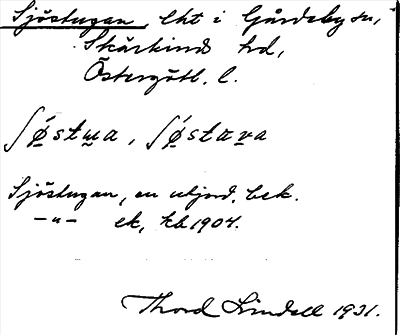 Sjöstugan, lht i Gårdeby sn,
Skärkinds hd,
Östergötl. l.
ʃø̀stɯa, ʃø̀stava
Sjöstugan, en utjord, bek.
—"— ek, kb 1904.
Thord Lindell 1931.